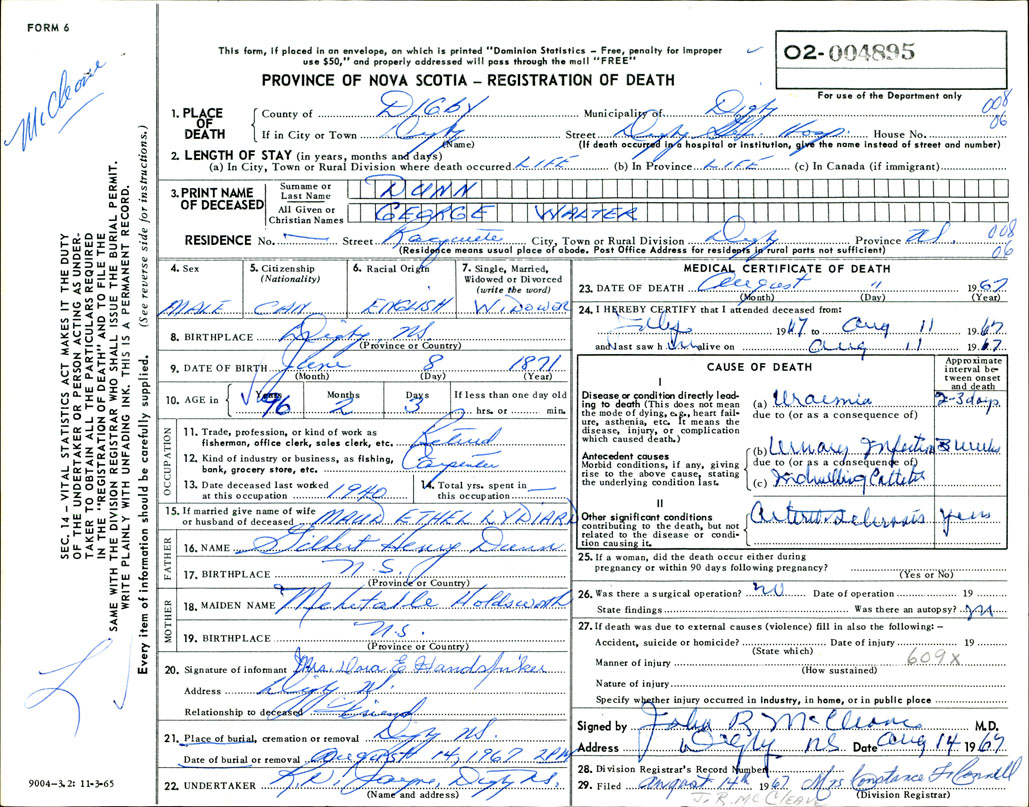 FORM 6
McCleave
This form, if placed in an envelope, on which is printed "Dominion Statistics – Free, penalty for improper
use $50," and properly addressed will pass through the mail "FREE"
PROVINCE OF NOVA SCOTIA – REGISTRATION OF DEATH
02-004895
For use of the Department only
008
06
1. PLACE OF DEATH
County of DIGBY Municipality of Digby
If in City or Town Digby Street Digby Gen. Hosp. House No.
(Name) (If death occurred in a hospital or institution, give the name instead of street and number)
2. LENGTH OF STAY (in years, months and days)
(a) In City, Town or Rural Division where death occurred LIFE (b) In Province LIFE (c) In Canada (if immigrant)
3. PRINT NAME OF DECEASED
Surname or Last Name DUNN
All Given or Christian Names GEORGE WALTER
RESIDENCE No. — Street Racquette City, Town or Rural Division Digby Province N.S. 008
06
(Residence means usual place of abode. Post Office Address for residents in rural parts not sufficient)
4. Sex MALE
5. Citizenship (Nationality) CAN
6. Racial Origin ENGLISH
7. Single, Married, Widowed or Divorced (write the word) WIDOWER
8. BIRTHPLACE Digby N.S.
(Province or Country)
9. DATE OF BIRTH June 8 1871
(Month) (Day) (Year)
10. AGE in Years 96 Months 2 Days 3 If less than one day old
hrs. or min.
OCCUPATION
11. Trade, profession, or kind of work as
fisherman, office clerk, sales clerk, etc. Retired
12. Kind of industry or business, as fishing,
bank, grocery store, etc. Carpenter
13. Date deceased last worked
at this occupation 1940
14. Total yrs. spent in
this occupation —
15. If married give name of wife
or husband of deceased MAUD ETHEL LYDIARD
FATHER
16. NAME Gilbert Henry Dunn
17. BIRTHPLACE N.S.
(Province or Country)
MOTHER
18. MAIDEN NAME Mehetable Holdsworth
19. BIRTHPLACE N.S.
(Province or Country)
20. Signature of informant Mrs. Dora E. Handspiker
Address Digby N.
Relationship to deceased Friend
21. Place of burial, cremation or removal Digby N.S.
Date of burial or removal August 14, 1967 2PM
22. UNDERTAKER Digby N.S.
(Name and address)
MEDICAL CERTIFICATE OF DEATH
23. DATE OF DEATH August 11 1967
(Month) (Day) (Year)
24. I HEREBY CERTIFY that I attended deceased from:
July 1967 to Aug 11 1967
and last saw him alive on Aug 11 1967
CAUSE OF DEATH
Approximate interval between onset and death
I
Disease or condition directly leading to death (This does not mean
the mode of dying, e.g., heart failure, asthenia, etc. It means the
disease, injury, or complication
which caused death.)
(a) Uraemia 2-3 days
due to (or as a consequence of)
Antecedent causes
Morbid conditions, if any, giving
rise to the above cause, stating
the underlying condition last.
(b) Urinary Infection 3 weeks
due to (or as a consequence of)
(c) Indwelling Catheter
II
Other significant conditions
contributing to the death, but not
related to the disease or condition causing it.
Arteriosclerosis years
25. If a woman, did the death occur either during
pregnancy or within 90 days following pregnancy?
(Yes or No)
26. Was there a surgical operation? No Date of operation 19
State findings Was there an autopsy? No
27. If death was due to external causes (violence) fill in also the following: –
Accident, suicide or homicide? Date of injury 19
(State which)
Manner of injury 609X
(How sustained)
Nature of injury
Specify whether injury occurred in industry, in home, or in public place
Signed by John R. McCleave M.D.
Address Digby N.S. Date Aug 14 1967
28. Division Registrar's Record Number
29. Filed August 14th 1967 Mrs Constance F. Connell
J.R. McCLEAVE (Division Registrar)
SEC. 14 – VITAL STATISTICS ACT MAKES IT THE DUTY
OF THE UNDERTAKER OR PERSON ACTING AS UNDER-
TAKER TO OBTAIN ALL THE PARTICULARS REQUIRED
IN THE "REGISTRATION OF DEATH" AND TO FILE THE
SAME WITH THE DIVISION REGISTRAR WHO SHALL ISSUE THE BURIAL PERMIT.
WRITE PLAINLY WITH UNFADING INK. THIS IS A PERMANENT RECORD.
Every item of information should be carefully supplied. (See reverse side for instructions.)
9004-3.2: 11-3-65